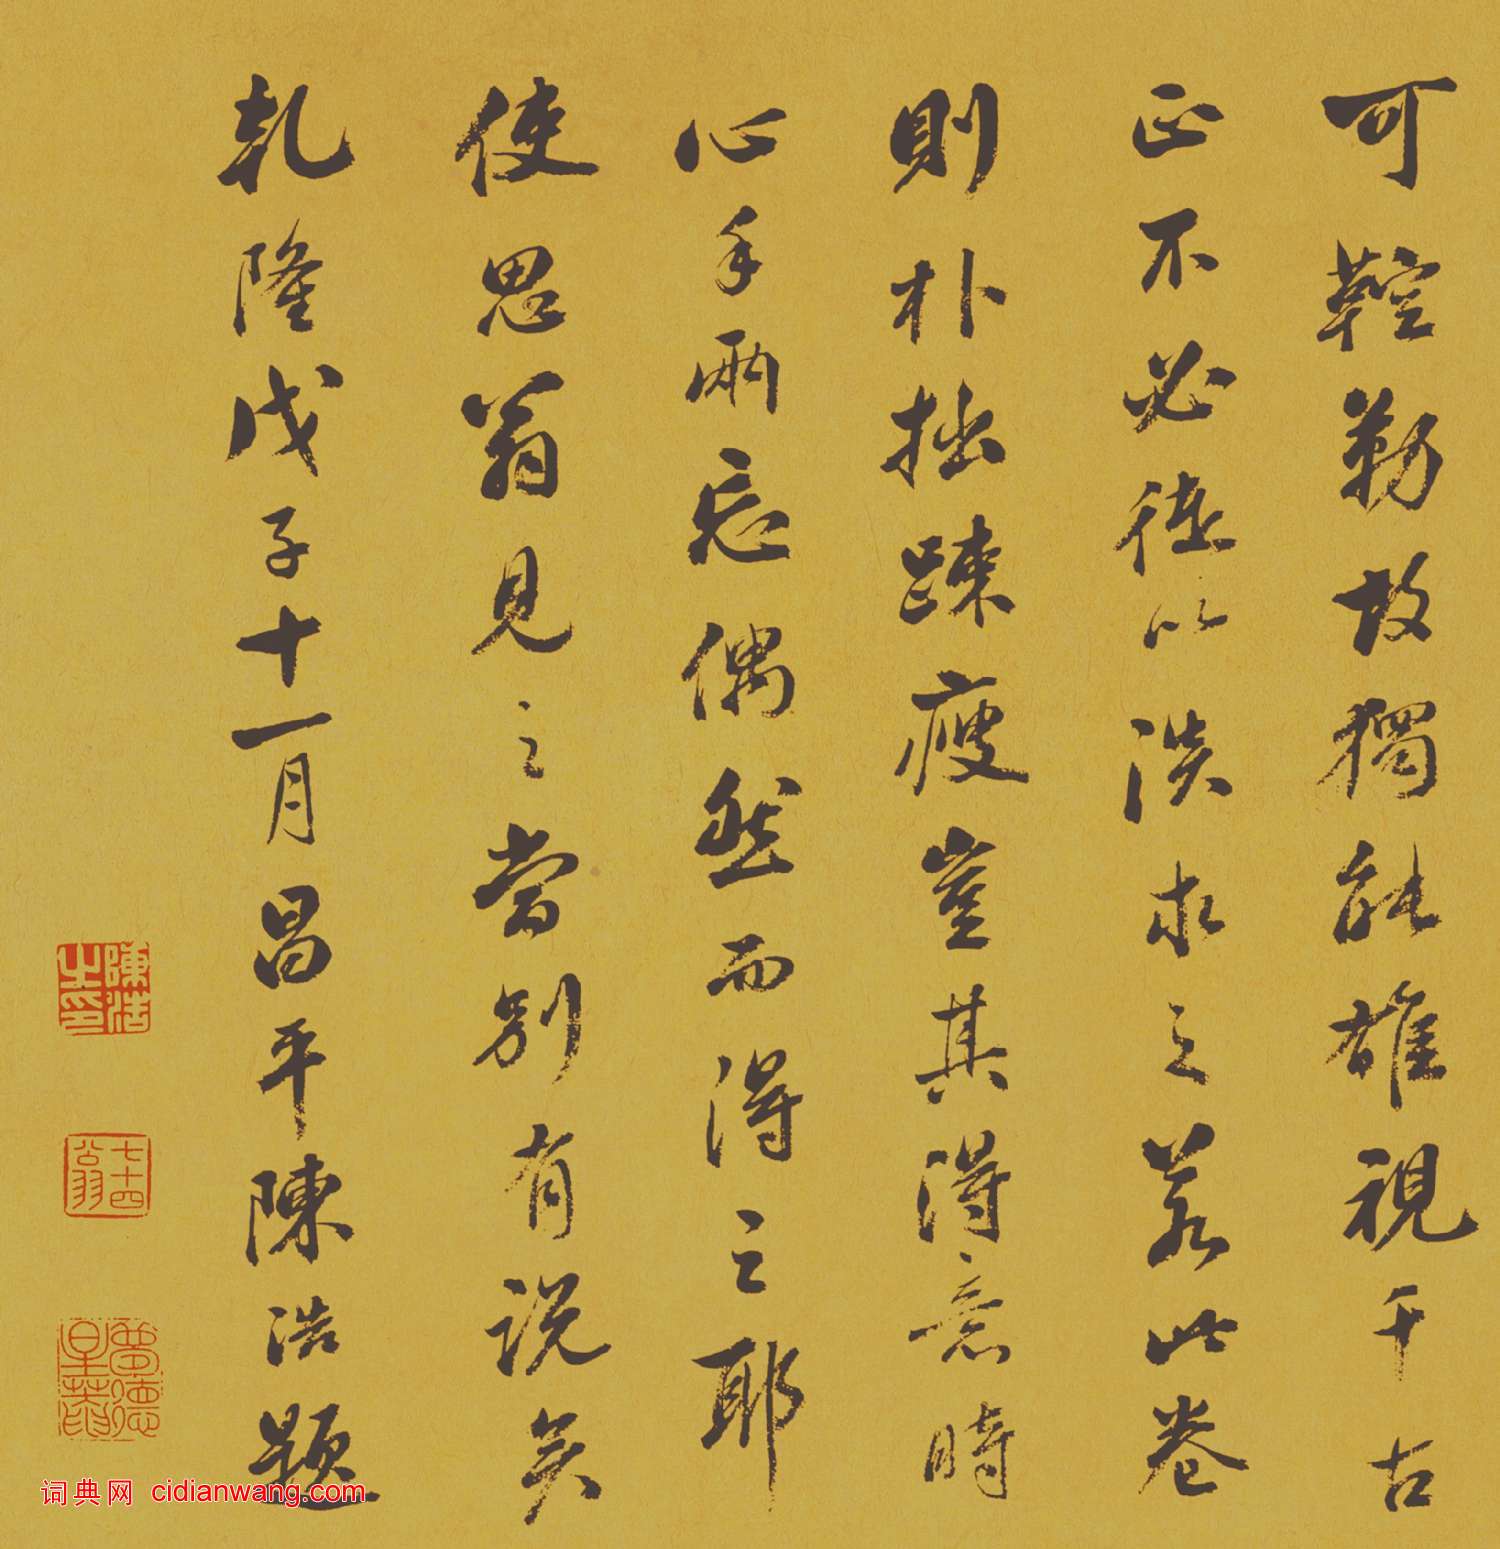 可鞚勒故獨能雄視千古
正不必徒以淡求之若此卷
則朴拙疎瘦豈其得意時
心手兩忘偶然而得之耶
使思翁見之當別有說矣
乹隆戊子十一月昌平陳浩題
陳浩之印
七十四翁
词典网 cidianwang.com